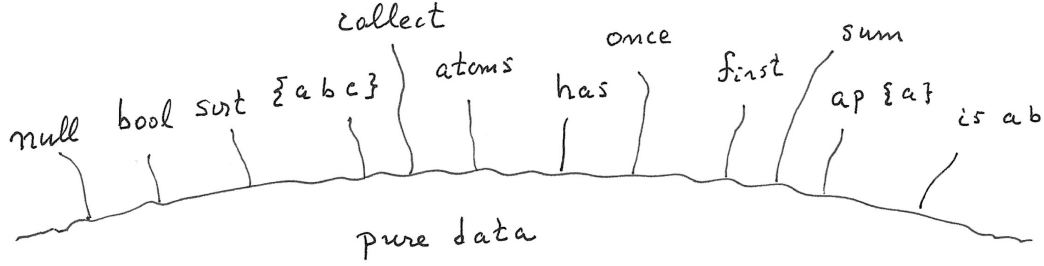 null
bool
sort
{a b c}
collect
atoms
has
once
first
sum
ap {a}
is a b
pure data